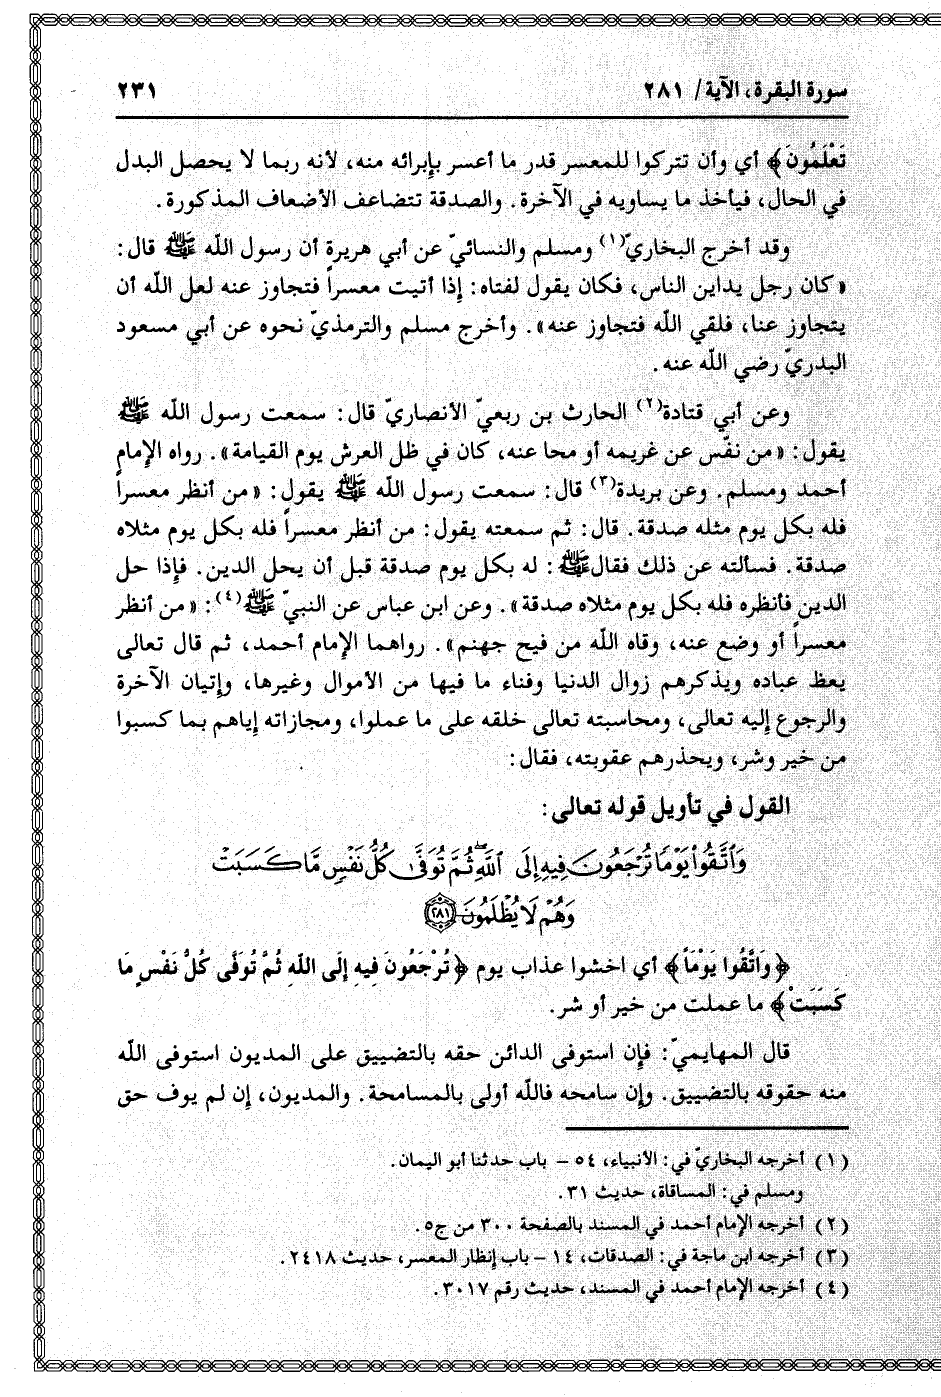 سورة البقرة، الآية/ ٢٨١ ٢٣١
تَعْلَمُونَ﴾ أي وأن تتركوا للمعسر قدر ما أعسر بإبرائه منه، لأنه ربما لا يحصل البدل
في الحال، فيأخذ ما يساويه في الآخرة. والصدقة تتضاعف الأضعاف المذكورة.
وقد أخرج البخاريّ(١) ومسلم والنسائيّ عن أبي هريرة أن رسول اللّه ﷺ قال:
«كان رجل يداين الناس، فكان يقول لفتاه: إذا أتيت معسراً فتجاوز عنه لعل اللّه أن
يتجاوز عنا، فلقي اللّه فتجاوز عنه». وأخرج مسلم والترمذيّ نحوه عن أبي مسعود
البدريّ رضي اللّه عنه.
وعن أبي قتادة(٢) الحارث بن ربعيّ الأنصاريّ قال: سمعت رسول اللّه ﷺ
يقول: «من نفّس عن غريمه أو محا عنه، كان في ظل العرش يوم القيامة». رواه الإمام
أحمد ومسلم. وعن بريدة(٣) قال: سمعت رسول اللّه ﷺ يقول: «من أنظر معسراً
فله بكل يوم مثله صدقة. قال: ثم سمعته يقول: من أنظر معسراً فله بكل يوم مثلاه
صدقة. فسألته عن ذلك فقال ﷺ: له بكل يوم صدقة قبل أن يحل الدين. فإذا حل
الدين فأنظره فله بكل يوم مثلاه صدقة». وعن ابن عباس عن النبيّ ﷺ(٤): «من أنظر
معسراً أو وضع عنه، وقاه اللّه من فيح جهنم». رواهما الإمام أحمد، ثم قال تعالى
يعظ عباده ويذكرهم زوال الدنيا وفناء ما فيها من الأموال وغيرها، وإتيان الآخرة
والرجوع إليه تعالى، ومحاسبته تعالى خلقه على ما عملوا، ومجازاته إياهم بما كسبوا
من خير وشر، ويحذرهم عقوبته، فقال:
القول في تأويل قوله تعالى:
وَٱتَّقُوا۟ يَوْمًا تُرْجَعُونَ فِيهِ إِلَى ٱللَّهِ ۖ ثُمَّ تُوَفَّىٰ كُلُّ نَفْسٍ مَّا كَسَبَتْ
وَهُمْ لَا يُظْلَمُونَ ﴿٢٨١﴾
﴿وَاتَّقُوا يَوْمَاً﴾ أي اخشوا عذاب يوم ﴿تُرْجَعُونَ فِيهِ إِلَى اللهِ ثُمَّ تُوَفَّى كُلُّ نَفْسٍ مَا
كَسَبَتْ﴾ ما عملت من خير أو شر.
قال المهايميّ: فإن استوفى الدائن حقه بالتضييق على المديون استوفى اللّه
منه حقوقه بالتضييق. وإن سامحه فاللّه أولى بالمسامحة. والمديون، إن لم يوف حق
(١) أخرجه البخاريّ في: الأنبياء، ٥٤ – باب حدثنا أبو اليمان.
ومسلم في: المساقاة، حديث ٣١.
(٢) أخرجه الإمام أحمد في المسند بالصفحة ٣٠٠ من ج٥.
(٣) أخرجه ابن ماجة في: الصدقات، ١٤ – باب إنظار المعسر، حديث ٢٤١٨.
(٤) أخرجه الإمام أحمد في المسند، حديث رقم ٣٠١٧.